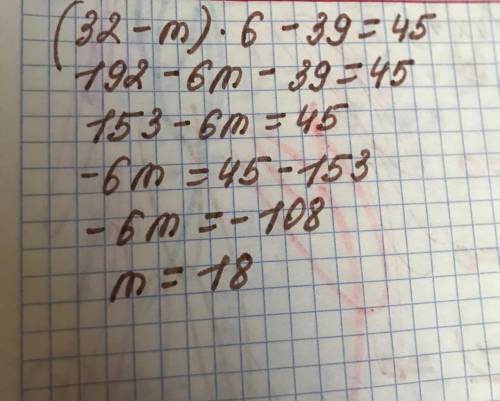 (32 - m) · 6 - 39 = 45
192 - 6m - 39 = 45
153 - 6m = 45
-6m = 45 - 153
-6m = -108
m = 18